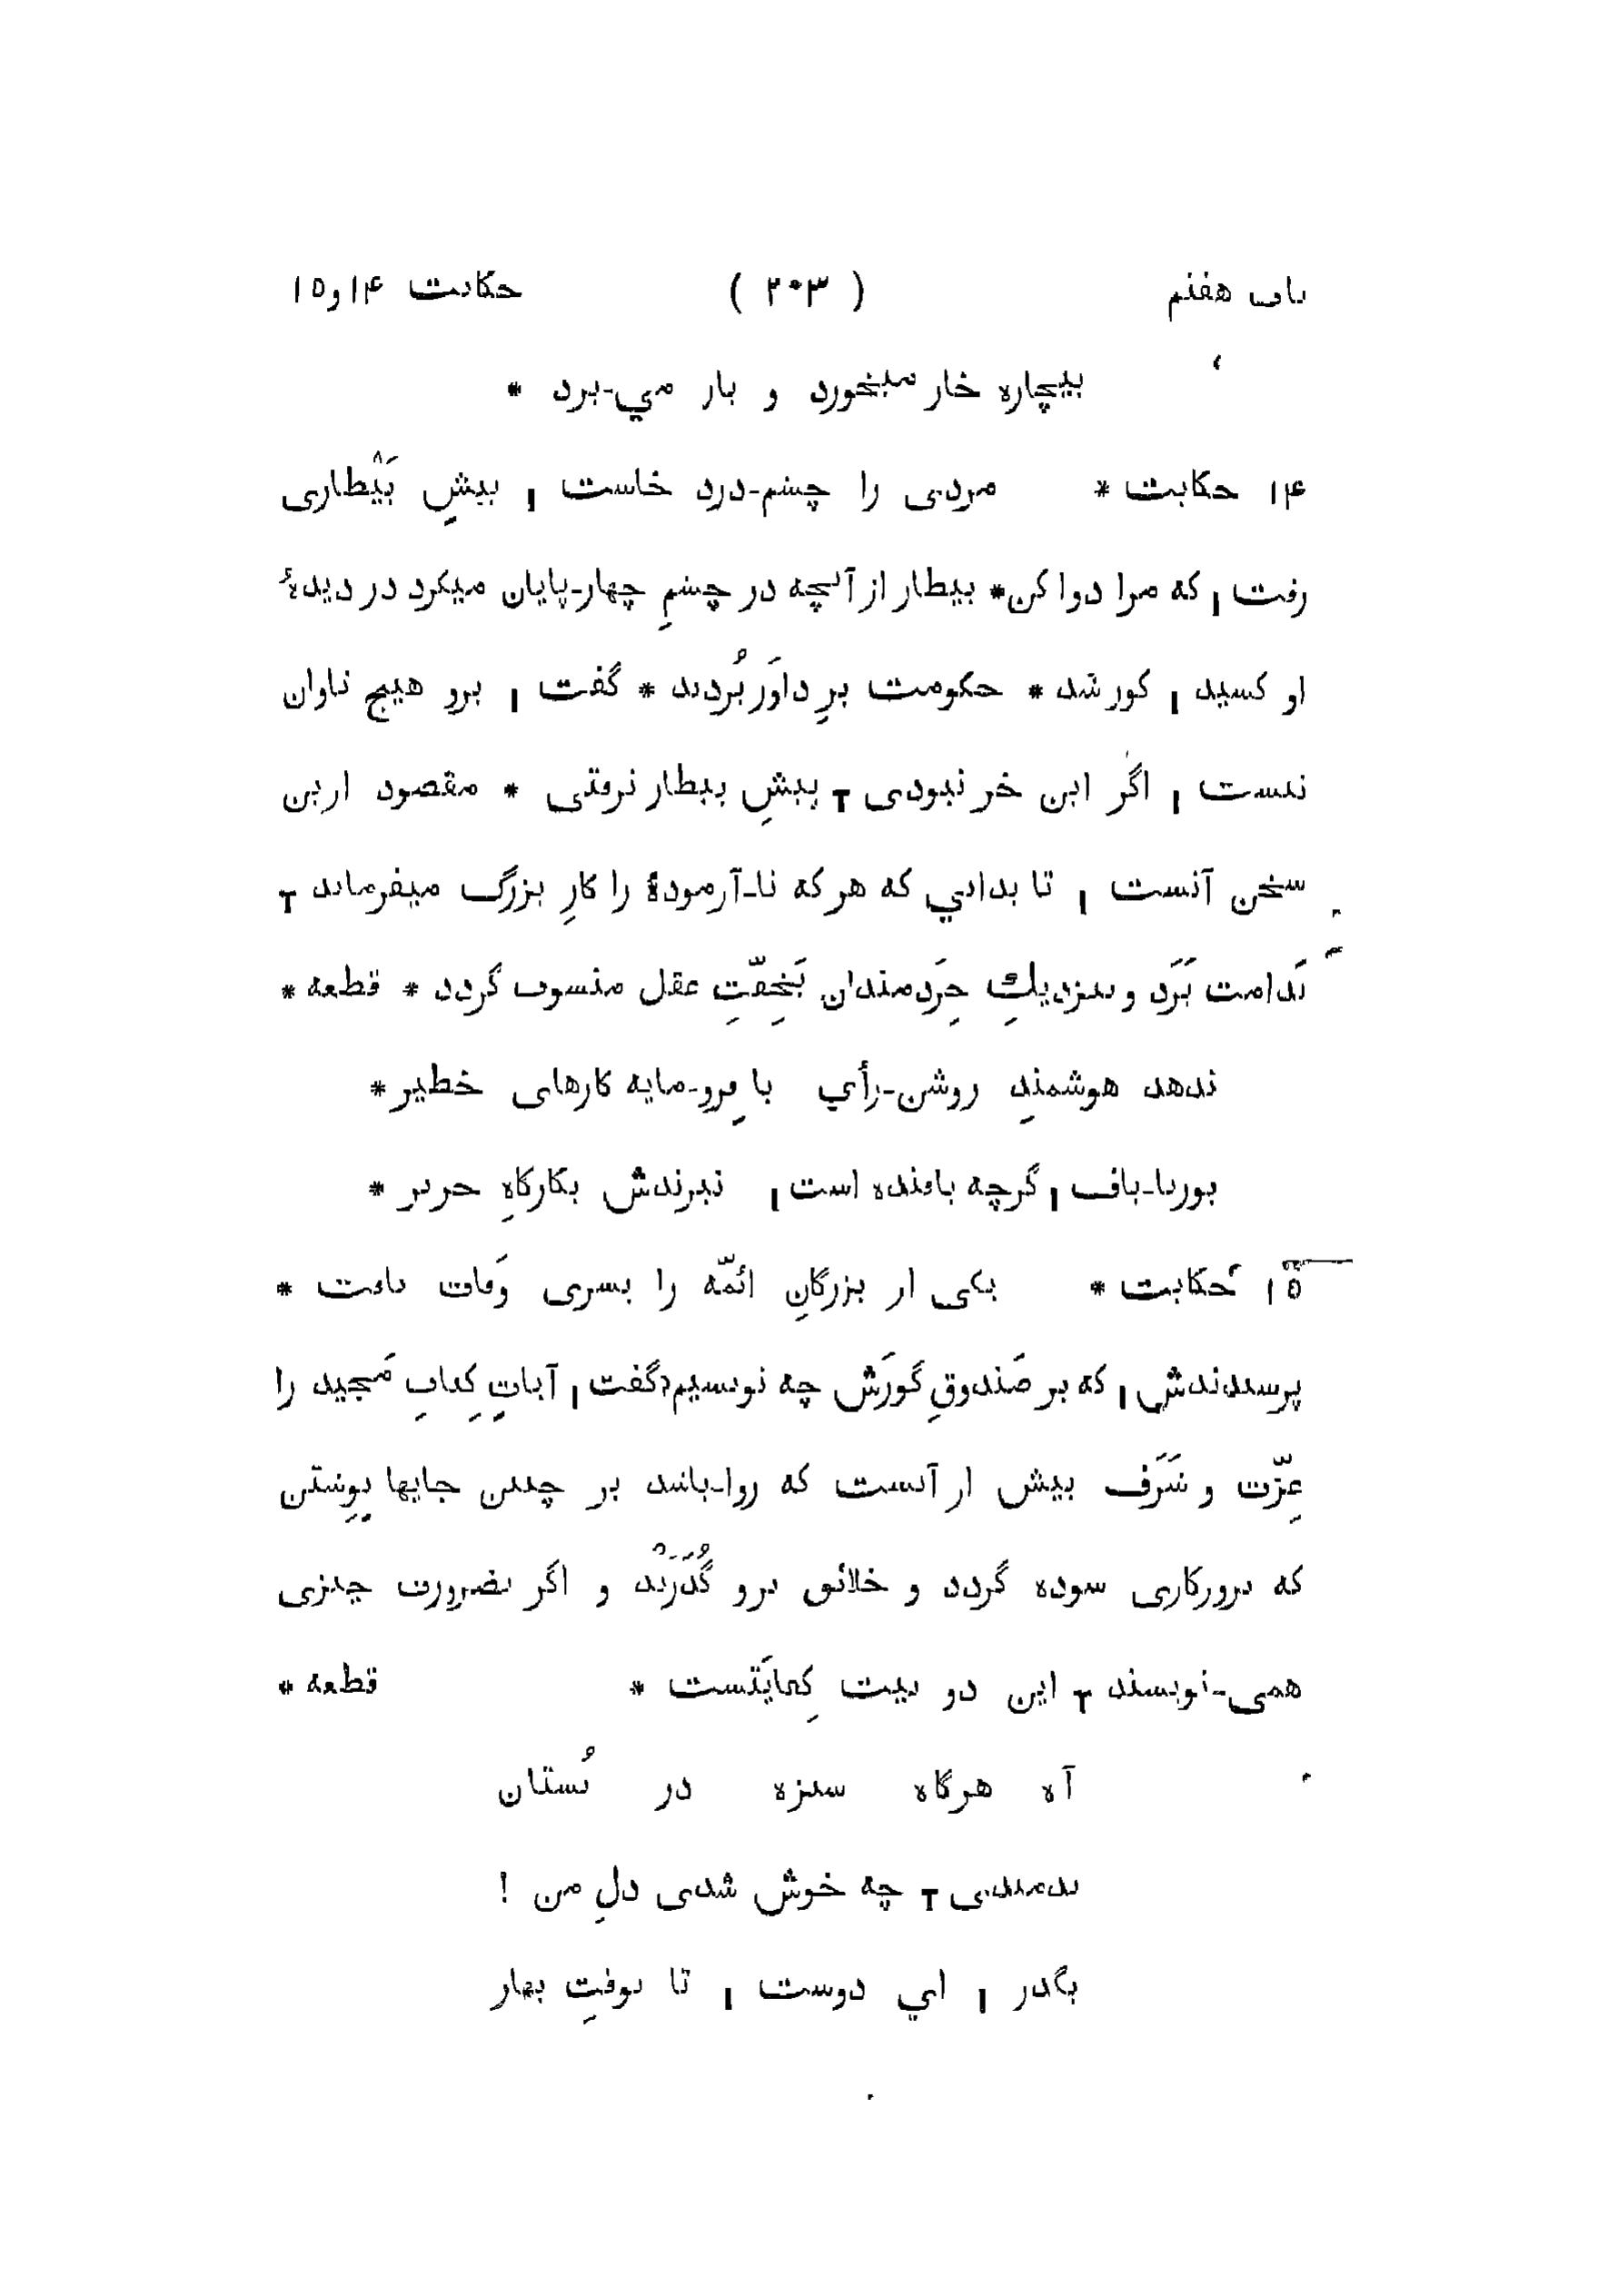 باب هفتم ( ۲۰۳ ) حکایت ۱۴ و ۱۵
بیچاره خار میخورد و بار می-برد *
۱۴ حکایت * مردی را چشم-درد خاست | پیشِ بَیْطاری
رفت | که مرا دوا کن * بیطار از آنچه در چشمِ چهار-پایان میکرد در دیدهٔ
او کشید | کور شد * حکومت برِ داوَر بُردند * گفت | برو هیچ تاوان
نیست | اگر این خر نبودی ┬ پیشِ بیطار نرفتی * مقصود ازین
سخن آنست | تا بدانی که هر که نا-آزمودهٔ را کارِ بزرگ میفرماید ┬
نَدامت بَرَد و بنزدیكِ خِرَدمندان بَخِفّتِ عقل منسوب گردد * قطعه *
ندهد هوشمندِ روشن-رأی با فِرو-مایه کارهای خطیر *
بوریا-باف | گرچه بافنده است | نبرندش بکارگاهِ حریر *
۱۵ حکایت * یکی از بزرگانِ ائمّه را پسری وَفات یافت *
پرسیدندش | که بر صَندوقِ گورَش چه نویسیم؟ گفت | آیاتِ کِتابِ مَجید را
عِزّت و شَرَف بیش از آنست که روا-باشد بر چنین جایها نِوِشتن
که بروزگاری سوده گردد و خلائق برو گُذَرَنْد و اگر بضرورت چیزی
همی-نویسند ┬ این دو بیت کِفایَتست * قطعه *
آه هرگاه سبزه در بُستان
بدمیدی ┬ چه خوش شدی دلِ من !
بگذر | ای دوست | تا بوقتِ بهار